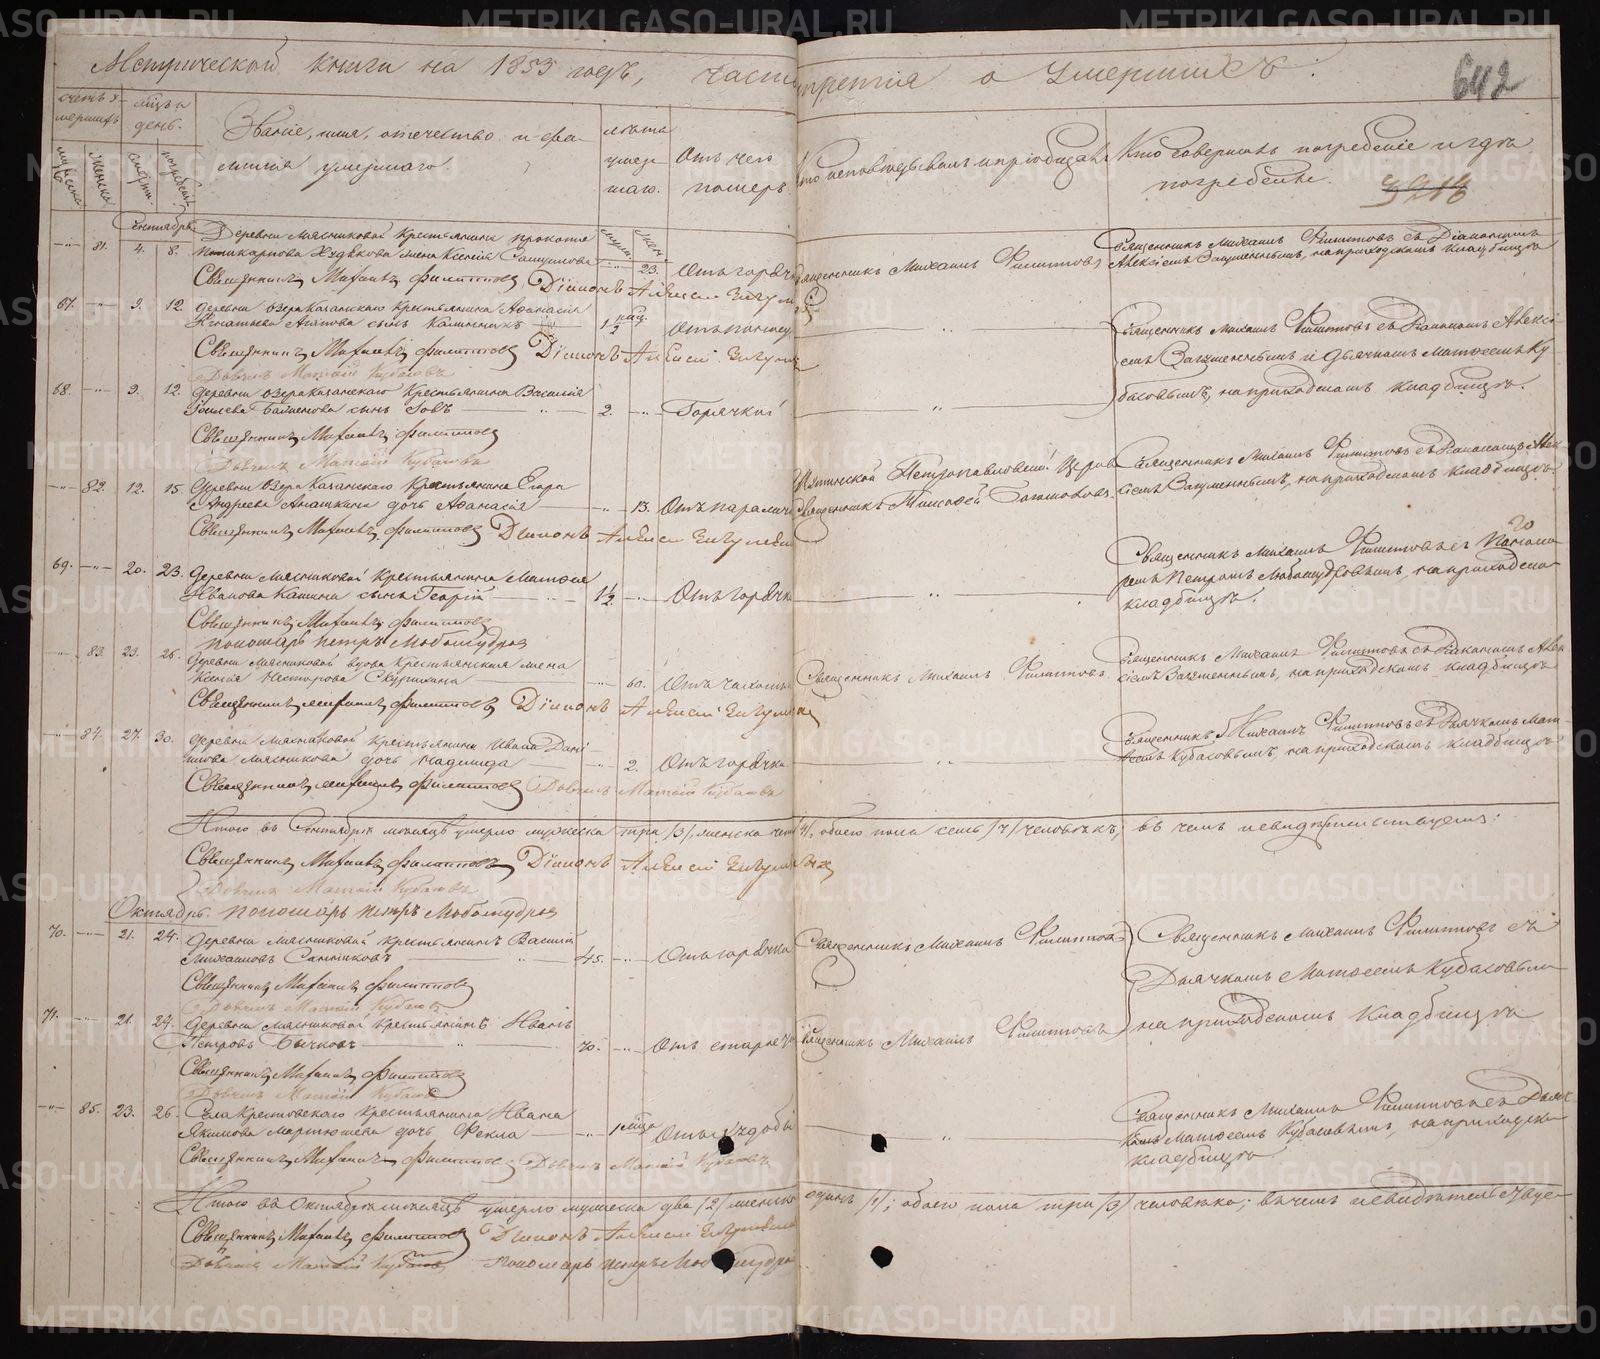 Метрической книги на 1853 годъ, часть третiя о умершихъ.
642
счетъ умершихъ
мѣсяцъ и день.
Званiе, имя, отечество и фамилiя умершаго.
лѣта умершаго.
Отъ чего померъ
Кто исповѣдывалъ и прiобщалъ
Кто совершалъ погребенiе и гдѣ погребены.
3216
мужеска
женска
смерти.
погребен.
Сентябрь
81. 4. 8. Деревни Мясниковой крестьянина Прокопiя
Поликарпова Худякова жена Ксенiя 23. Отъ горячки Священникъ Михаилъ Филиповъ
Священникъ Михаилъ Филиповъ съ Дiакономъ
Алексiемъ на приходскомъ кладбищѣ
Священникъ Михаилъ Филиповъ Дiаконъ Алексiй
67. 9. 12. Деревни Озера Казанскаго крестьянина Афанасiя
Игнатьева Агапова сынъ Каллиникъ
Священникъ Михаилъ Филиповъ съ Дiакономъ Алексi-
емъ и Дьячкомъ Матѳеемъ Ку-
басовымъ, на приходскомъ кладбищѣ.
Священникъ Михаилъ Филиповъ Дiаконъ Алексiй
Дьячекъ Матѳiй Кубасовъ
68. 9. 12. Деревни Озера Казанскаго крестьянина Василiя
сынъ Iовъ 2. Горячки
Священникъ Михаилъ Филиповъ
Дьячекъ Матѳiй Кубасовъ
82. 12. 15. Деревни Озера Казанскаго крестьянина Егора
Андреева дочь Афанасiя 13. Отъ паралича
Петропавловской Церкви
Священникъ
Священникъ Михаилъ Филиповъ съ Дiакономъ Алек-
сiемъ на приходскомъ кладбищѣ
Священникъ Михаилъ Филиповъ Дiаконъ Алексiй
69. 20. 23. Деревни Мясниковой крестьянина Матѳея
Иванова Кашина сынъ Георгiй 1½ Отъ горячки
Священникъ Михаилъ Филиповъ съ Понома-
ремъ Петромъ Любомудровымъ, на приходском
кладбищѣ.
Священникъ Михаилъ Филиповъ
Пономарь Петръ Любомудровъ
83. 23. 26. Деревни Мясниковой вдова крестьянская жена
Ксенiя Нестерова 60. Отъ чахотки Священникъ Михаилъ Филиповъ
Священникъ Михаилъ Филиповъ съ Дiакономъ Алек-
сiемъ на приходскомъ кладбищѣ
Священникъ Михаилъ Филиповъ Дiаконъ Алексiй
84. 27. 30. Деревни Мясниковой крестьянина Ивана Дани-
лова Мясникова дочь Надежда 2. Отъ горячки
Священникъ Михаилъ Филиповъ съ Дьячкомъ Мат-
ѳеемъ Кубасовымъ, на приходскомъ кладбищѣ
Священникъ Михаилъ Филиповъ Дьячекъ Матѳiй Кубасовъ
Итого въ Сентябрѣ месяцѣ умерло мужеска три /3/, женска четыре /4/, обоего пола семь /7/ человѣкъ; въ чемъ и свидѣтельствуемъ:
Священникъ Михаилъ Филиповъ Дiаконъ Алексiй
Дьячекъ Матѳiй Кубасовъ
Октябрь. Пономарь Петръ Любомудровъ
70. 21. 24. Деревни Мясниковой крестьянинъ Василiй
Михаиловъ 45. Отъ горячки Священникъ Михаилъ Филиповъ
Священникъ Михаилъ Филиповъ съ
Дьячкомъ Матѳеемъ Кубасовымъ
на приходскомъ кладбищѣ
Священникъ Михаилъ Филиповъ
Дьячекъ Матѳiй Кубасовъ
71. 21. 24. Деревни Мясниковой крестьянинъ Иванъ
Петровъ Бычковъ 70. Отъ старости Священникъ Михаилъ Филиповъ
Священникъ Михаилъ Филиповъ
Дьячекъ Матѳiй Кубасовъ
85. 23. 26. Села Крестовскаго крестьянина Ивана
Якимова Мартюшева дочь Фекла 1 мѣсяца
Священникъ Михаилъ Филиповъ съ Дьяч-
комъ Матѳеемъ Кубасовымъ, на приходском
кладбищѣ
Священникъ Михаилъ Филиповъ Дьячекъ Матѳiй Кубасовъ
Итого въ Октябрѣ месяцѣ умерло мужеска два /2/ женска одинъ /1/; обоего пола три /3/ человѣка; въ чемъ и свидѣтельствуе-
Священникъ Михаилъ Филиповъ Дiаконъ Алексiй
Дьячекъ Матѳiй Кубасовъ Пономарь Петръ Любомудровъ
METRIKI.GASO-URAL.RU